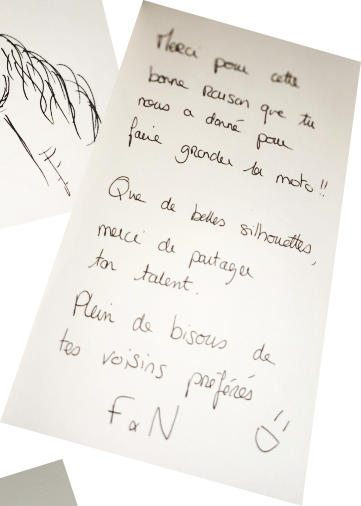 Merci pour cette
bonne raison que tu
nous a donné pour
faire gronder la moto !!
Que de belles silhouettes,
merci de partager
ton talent.
Plein de bisous de
tes voisins préférés
F & N